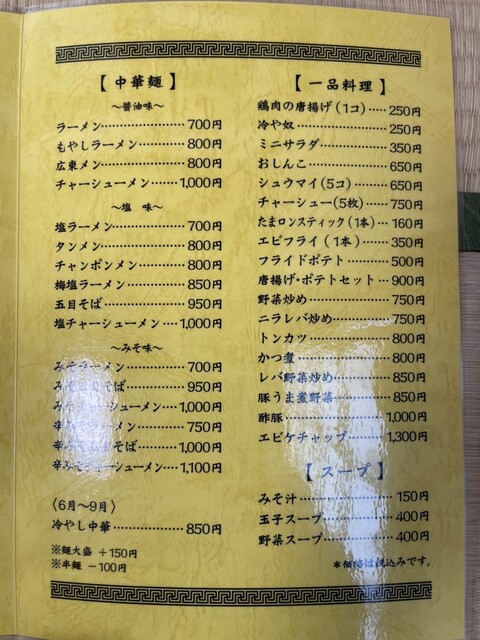 【中華麺】
〜醤油味〜
ラーメン…………………700円
もやしラーメン…………800円
広東メン…………………800円
チャーシューメン………1,000円
〜塩　味〜
塩ラーメン………………700円
タンメン…………………800円
チャンポンメン…………800円
梅塩ラーメン……………850円
五目そば…………………950円
塩チャーシューメン……1,000円
〜みそ味〜
みそラーメン……………700円
みそ　　そば……………950円
みそチャーシューメン…1,000円
辛みそラーメン…………750円
辛み　　そば……………1,000円
辛みそチャーシューメン…1,100円
〈6月〜9月〉
冷やし中華………………850円
※麺大盛 +150円
※半麺 −100円
【一品料理】
鶏肉の唐揚げ(1コ)……250円
冷や奴……………………250円
ミニサラダ………………350円
おしんこ…………………650円
シュウマイ(5コ)………650円
チャーシュー(5枚)……750円
たまロンスティック(1本)…160円
エビフライ(1本)………350円
フライドポテト…………500円
唐揚げ・ポテトセット…900円
野菜炒め…………………750円
ニラレバ炒め……………750円
トンカツ…………………800円
かつ煮……………………800円
レバ野菜炒め……………850円
豚うま煮野菜……………850円
酢豚………………………1,000円
エビケチャップ…………1,300円
【スープ】
みそ汁……………………150円
玉子スープ………………400円
野菜スープ………………400円
＊価格は税込みです。